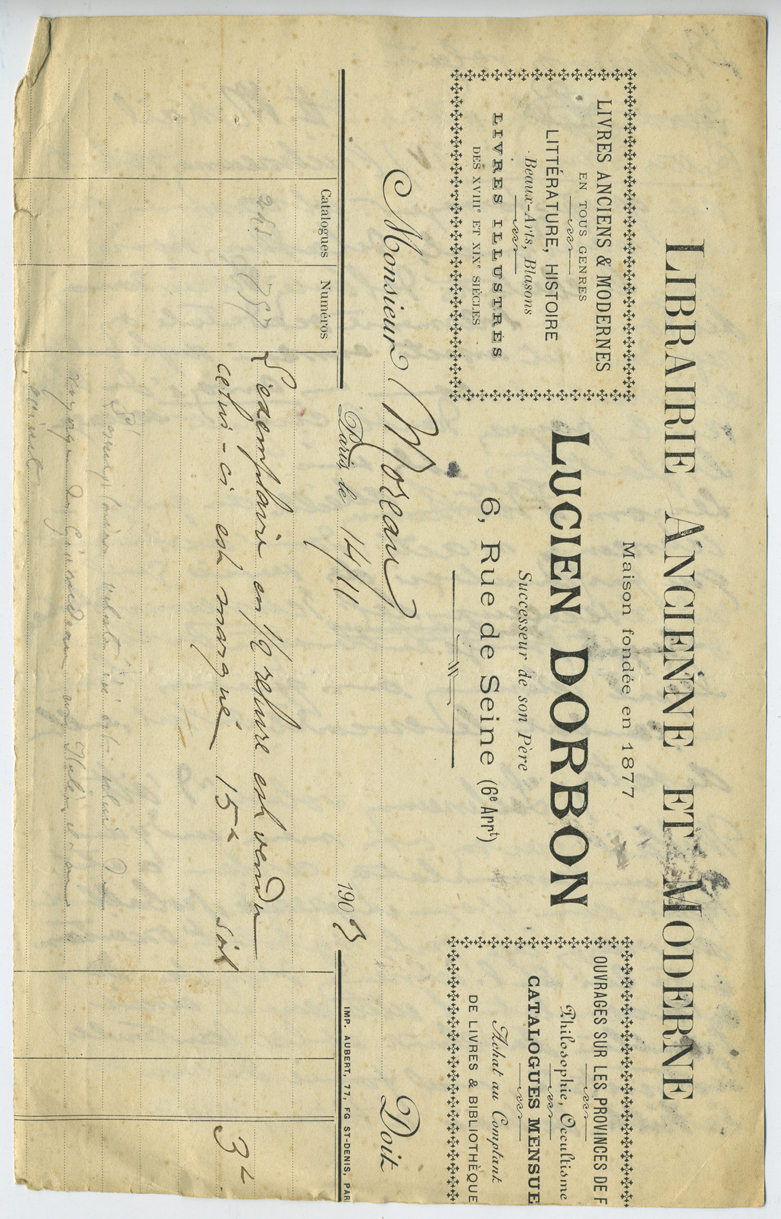 LIBRAIRIE ANCIENNE ET MODERNE
Maison fondée en 1877
LIVRES ANCIENS & MODERNES
EN TOUS GENRES
LITTÉRATURE, HISTOIRE
Beaux-Arts, Blasons
LIVRES ILLUSTRÉS
DES XVIIIe ET XIXe SIÈCLES
LUCIEN DORBON
Successeur de son Père
6, Rue de Seine (6e Arrt)
OUVRAGES SUR LES PROVINCES DE F
Philosophie, Occultisme
CATALOGUES MENSUE
Achat au Comptant
DE LIVRES & BIBLIOTHÈQUE
Monsieur Moreau Doit
Paris le 14/11 1903
IMP. AUBERT, 77, FG ST-DENIS, PAR
Catalogues Numéros
L'exemplaire en 1/2 reliure est vendu
celui-ci est marqué 15f soit 3f